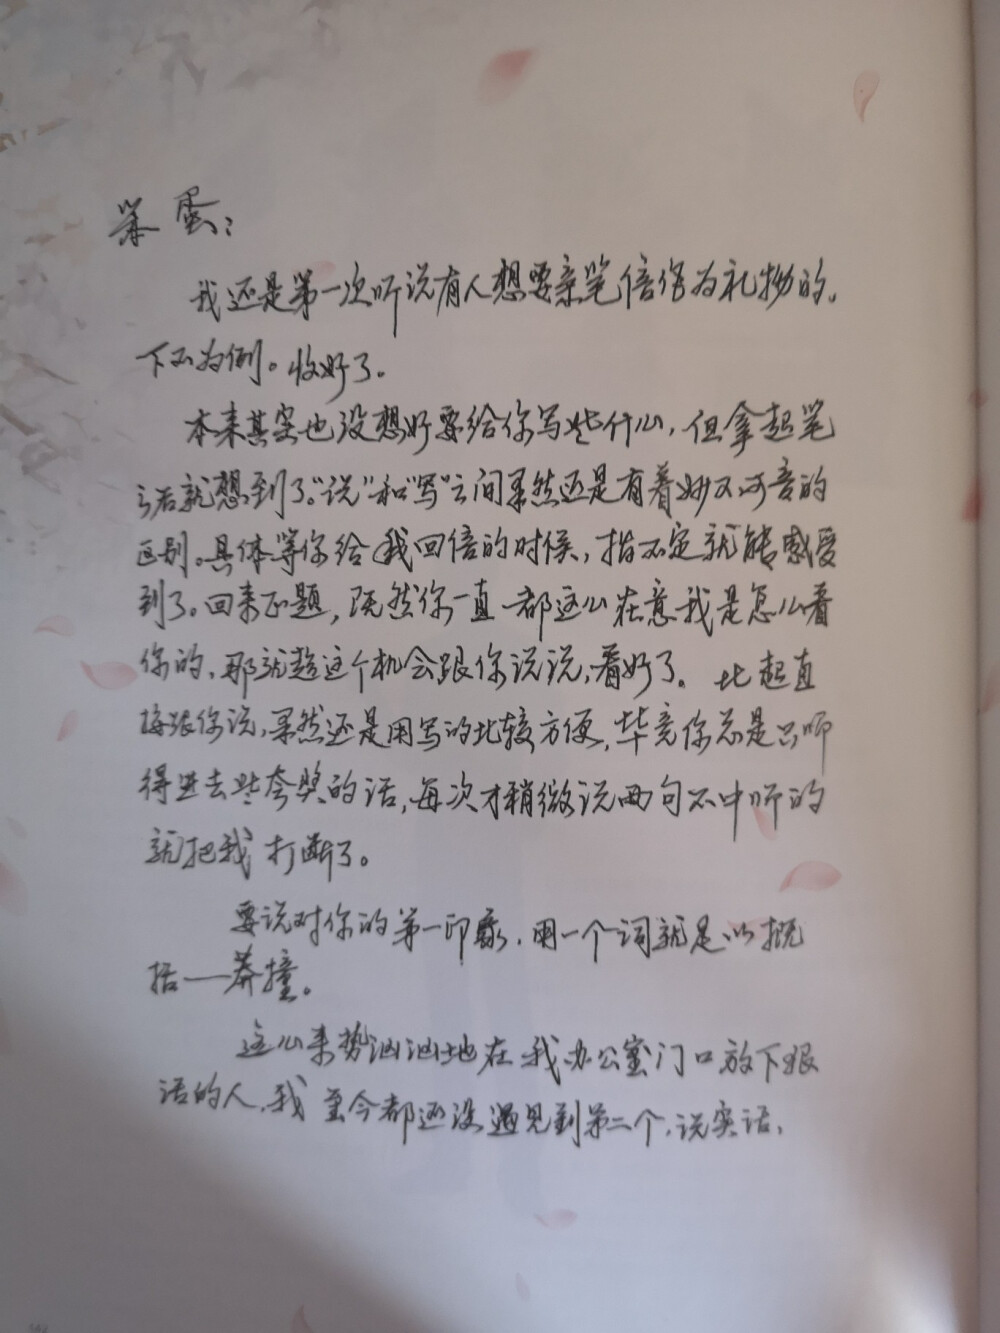 笨蛋：
我还是第一次听说有人想要亲笔信作为礼物的。
下不为例。收好了。
本来其实也没想好要给你写些什么，但拿起笔
后就想到了。“说”和“写”之间果然还是有着妙不可言的
区别。具体等你给我回信的时候，指不定就能感受
到了。回来正题，既然你一直都这么在意我是怎么看
你的，那就趁这个机会跟你说说，看好了。比起直
接跟你说，果然还是用写的比较方便，毕竟你总是只听
得进去些夸奖的话，每次才稍微说两句不中听的
就把我打断了。
要说对你的第一印象，用一个词就足以概
括——莽撞。
这么来势汹汹地在我办公室门口放下狠
话的人，我至今都还没遇见到第二个，说实话，